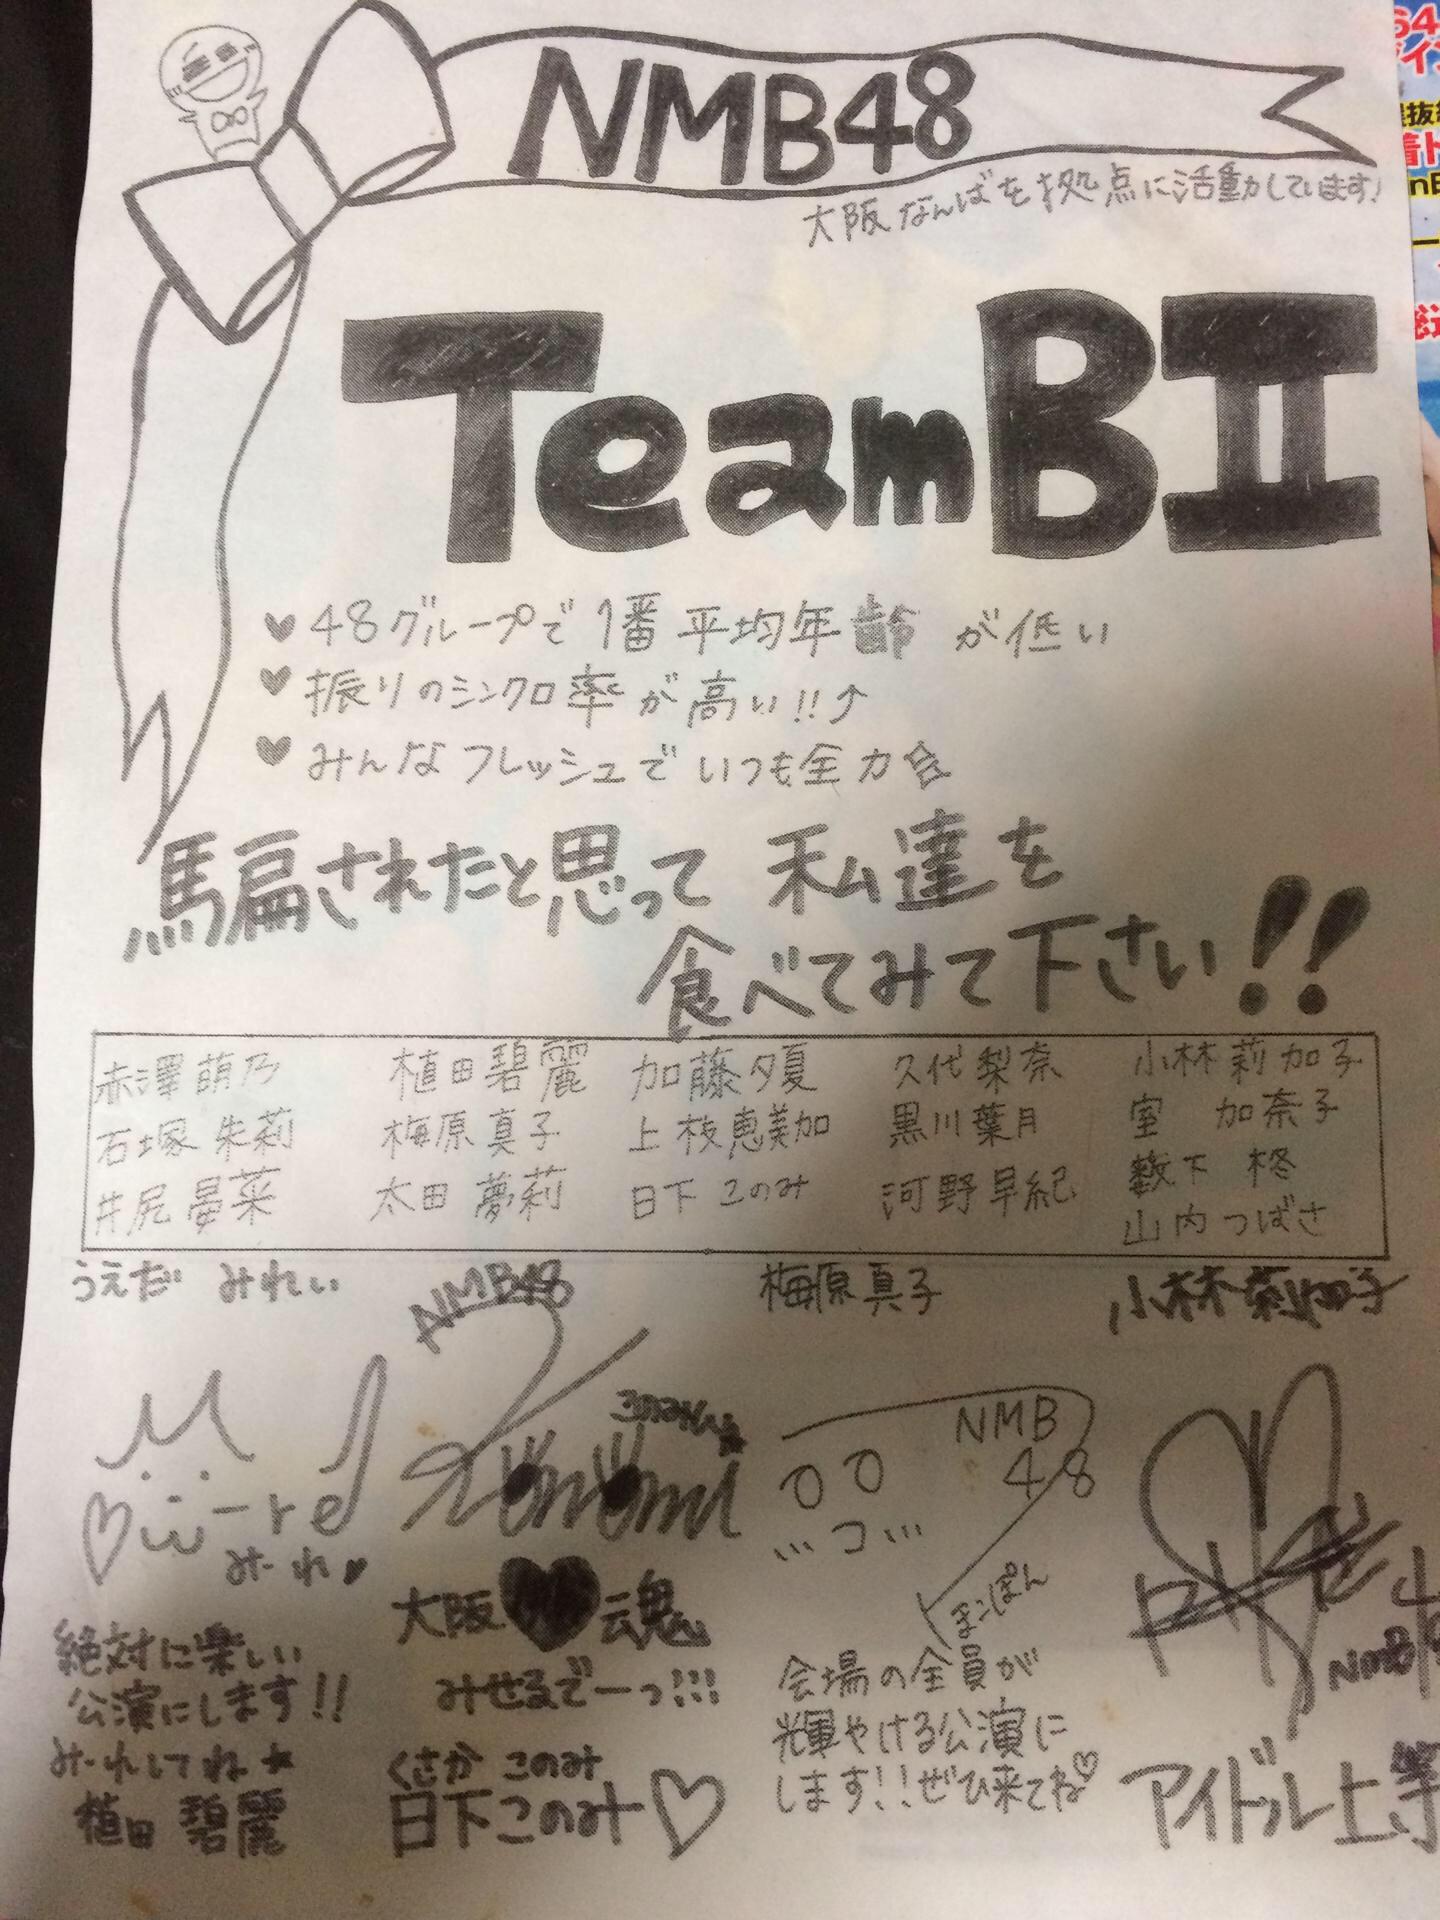 NMB48
大阪なんばを拠点に活動しています!
TeamBII
♥48グループで1番平均年齢が低い
♥振りのシンクロ率が高い!!↑
♥みんなフレッシュでいつも全力
騙されたと思って私達を
食べてみて下さい!!
赤澤萌乃 植田碧麗 加藤夕夏 久代梨奈 小林莉加子
石塚朱莉 梅原真子 上枝恵美加 黒川葉月 室 加奈子
井尻晏菜 太田夢莉 日下このみ 河野早紀 薮下 柊
山内つばさ
うえだ みれい
NMB48
梅原真子
小林莉加子
mi-re
みーれ♥
NMB
48
まこぽん
NMB48
絶対に楽しい
公演にします!!
みーれしてね★
植田 碧麗
大阪♥魂
みせるでーっ!!!
くさか このみ
日下このみ♡
会場の全員が
輝やける公演に
します!!ぜひ来てね♡
アイドル上等